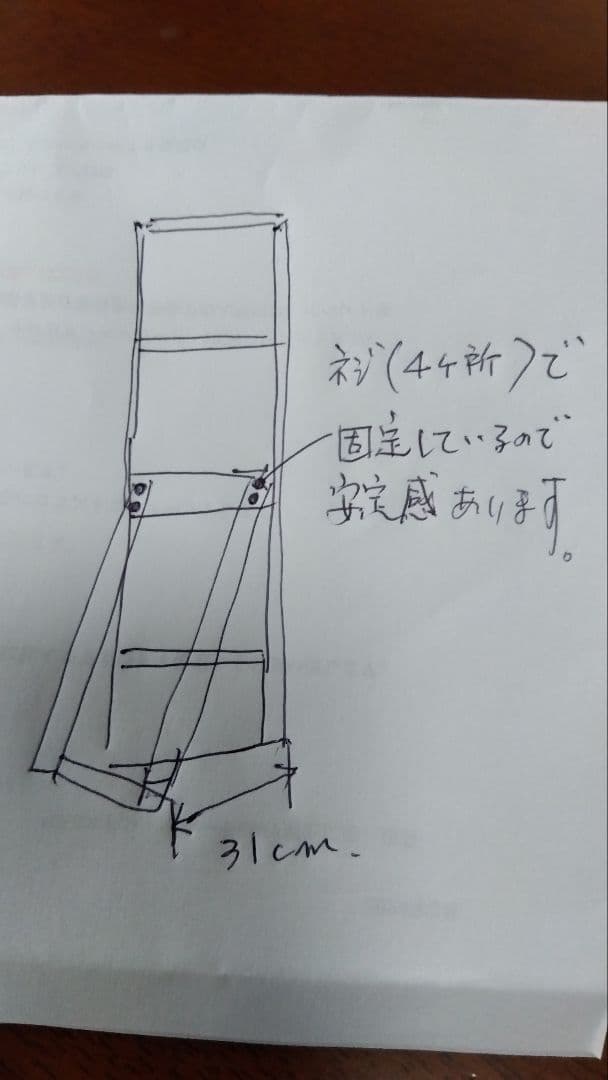 ネジ(4ケ所)で
固定しているので
安定感あります。
31cm.